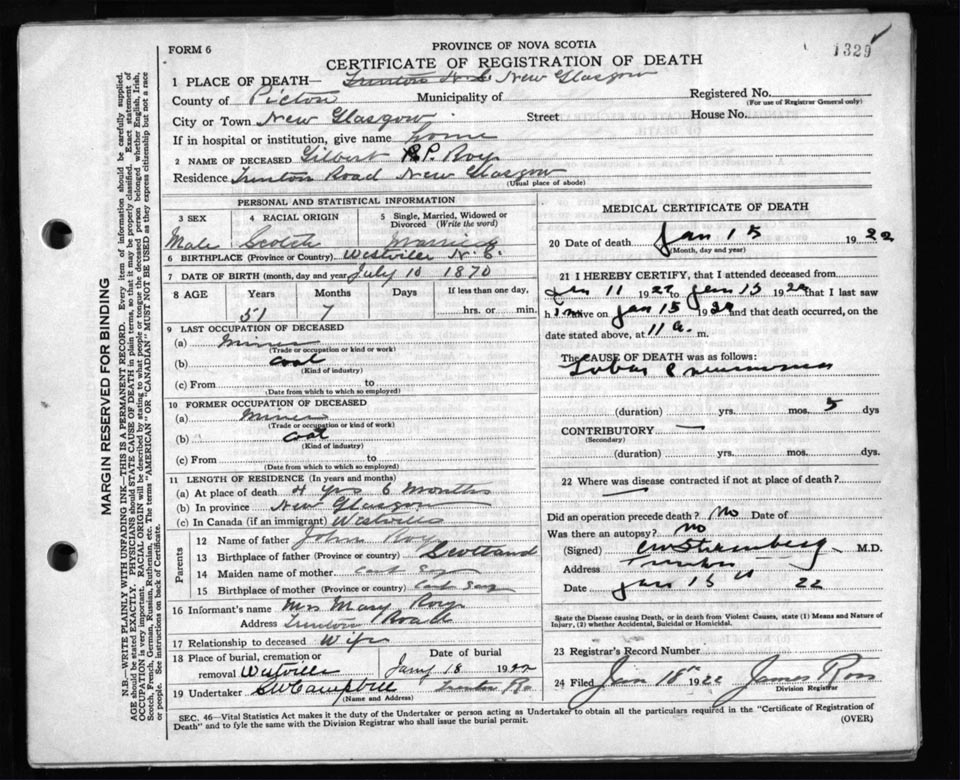 FORM 6
1329
PROVINCE OF NOVA SCOTIA
CERTIFICATE OF REGISTRATION OF DEATH
1 PLACE OF DEATH— Trenton N.S. New Glasgow
County of Pictou Municipality of Registered No.
(For use of Registrar General only)
City or Town New Glasgow Street House No.
If in hospital or institution, give name home
2 NAME OF DECEASED Gilbert P. Roy
Residence Trenton Road New Glasgow
(Usual place of abode)
PERSONAL AND STATISTICAL INFORMATION
3 SEX 4 RACIAL ORIGIN 5 Single, Married, Widowed or Divorced (Write the word)
Male Scotch Married
6 BIRTHPLACE (Province or Country) Westville N.S.
7 DATE OF BIRTH (month, day and year) July 10 1870
8 AGE Years Months Days If less than one day,
51 7 hrs. or min.
9 LAST OCCUPATION OF DECEASED
(a) Miner
(Trade or occupation or kind or work)
(b) Coal
(Kind of industry)
(c) From to
(Date from which to which so employed)
10 FORMER OCCUPATION OF DECEASED
(a) Miner
(Trade or occupation or kind of work)
(b) Coal
(Kind of industry)
(c) From to
(Date from which to which so employed)
11 LENGTH OF RESIDENCE (In years and months)
(a) At place of death 4 yrs 6 months
(b) In province New Glasgow
(c) In Canada (if an immigrant) Westville
Parents
12 Name of father John Roy
13 Birthplace of father (Province or country) Scotland
14 Maiden name of mother Cant Say
15 Birthplace of mother (Province or country) Cant Say
16 Informant's name Mrs Mary Roy
Address Trenton Road
17 Relationship to deceased Wife
18 Place of burial, cremation or Date of burial
removal Westville Jany 18 1922
19 Undertaker Campbell
(Name and Address)
MEDICAL CERTIFICATE OF DEATH
20 Date of death Jan 15 1922
(Month, day and year)
21 I HEREBY CERTIFY, that I attended deceased from
Jan 11 1922 to Jan 15 1922 that I last saw
him alive on Jan 15 1922 and that death occurred, on
date stated above, at 11 a. m.
The CAUSE OF DEATH was as follows:
Lobar Pneumonia
(duration) yrs. mos. 5 dys
CONTRIBUTORY —
(Secondary)
(duration) yrs. mos. dys.
22 Where was disease contracted if not at place of death?
Did an operation precede death? No Date of
Was there an autopsy? No
(Signed) M.D.
Address Trenton
Date Jan 15th 22
State the Disease causing Death, or in death from Violent Causes, state (1) Means and Nature of
Injury, (2) whether Accidental, Suicidal or Homicidal.
23 Registrar's Record Number
24 Filed Jan 18th 1922 James Ross
Division Registrar
SEC. 46—Vital Statistics Act makes it the duty of the Undertaker or person acting as Undertaker to obtain all the particulars required in the "Certificate of Registration of
Death" and to fyle the same with the Division Registrar who shall issue the burial permit. (OVER)
MARGIN RESERVED FOR BINDING
N.B.—WRITE PLAINLY WITH UNFADING INK—THIS IS A PERMANENT RECORD. Every item of information should be carefully supplied.
AGE should be stated EXACTLY. PHYSICIANS should STATE CAUSE OF DEATH in plain terms, so that it may be properly classified. Exact statement of
OCCUPATION is very important. RACIAL ORIGIN will be described by stating to what people or tongue the deceased person belonged whether English, Irish,
Scotch, French, German, Russian, Ruthenian, etc. The terms "AMERICAN" OR "CANADIAN" MUST NOT BE USED as they express citizenship but not a race
or people. See instructions on back of Certificate.